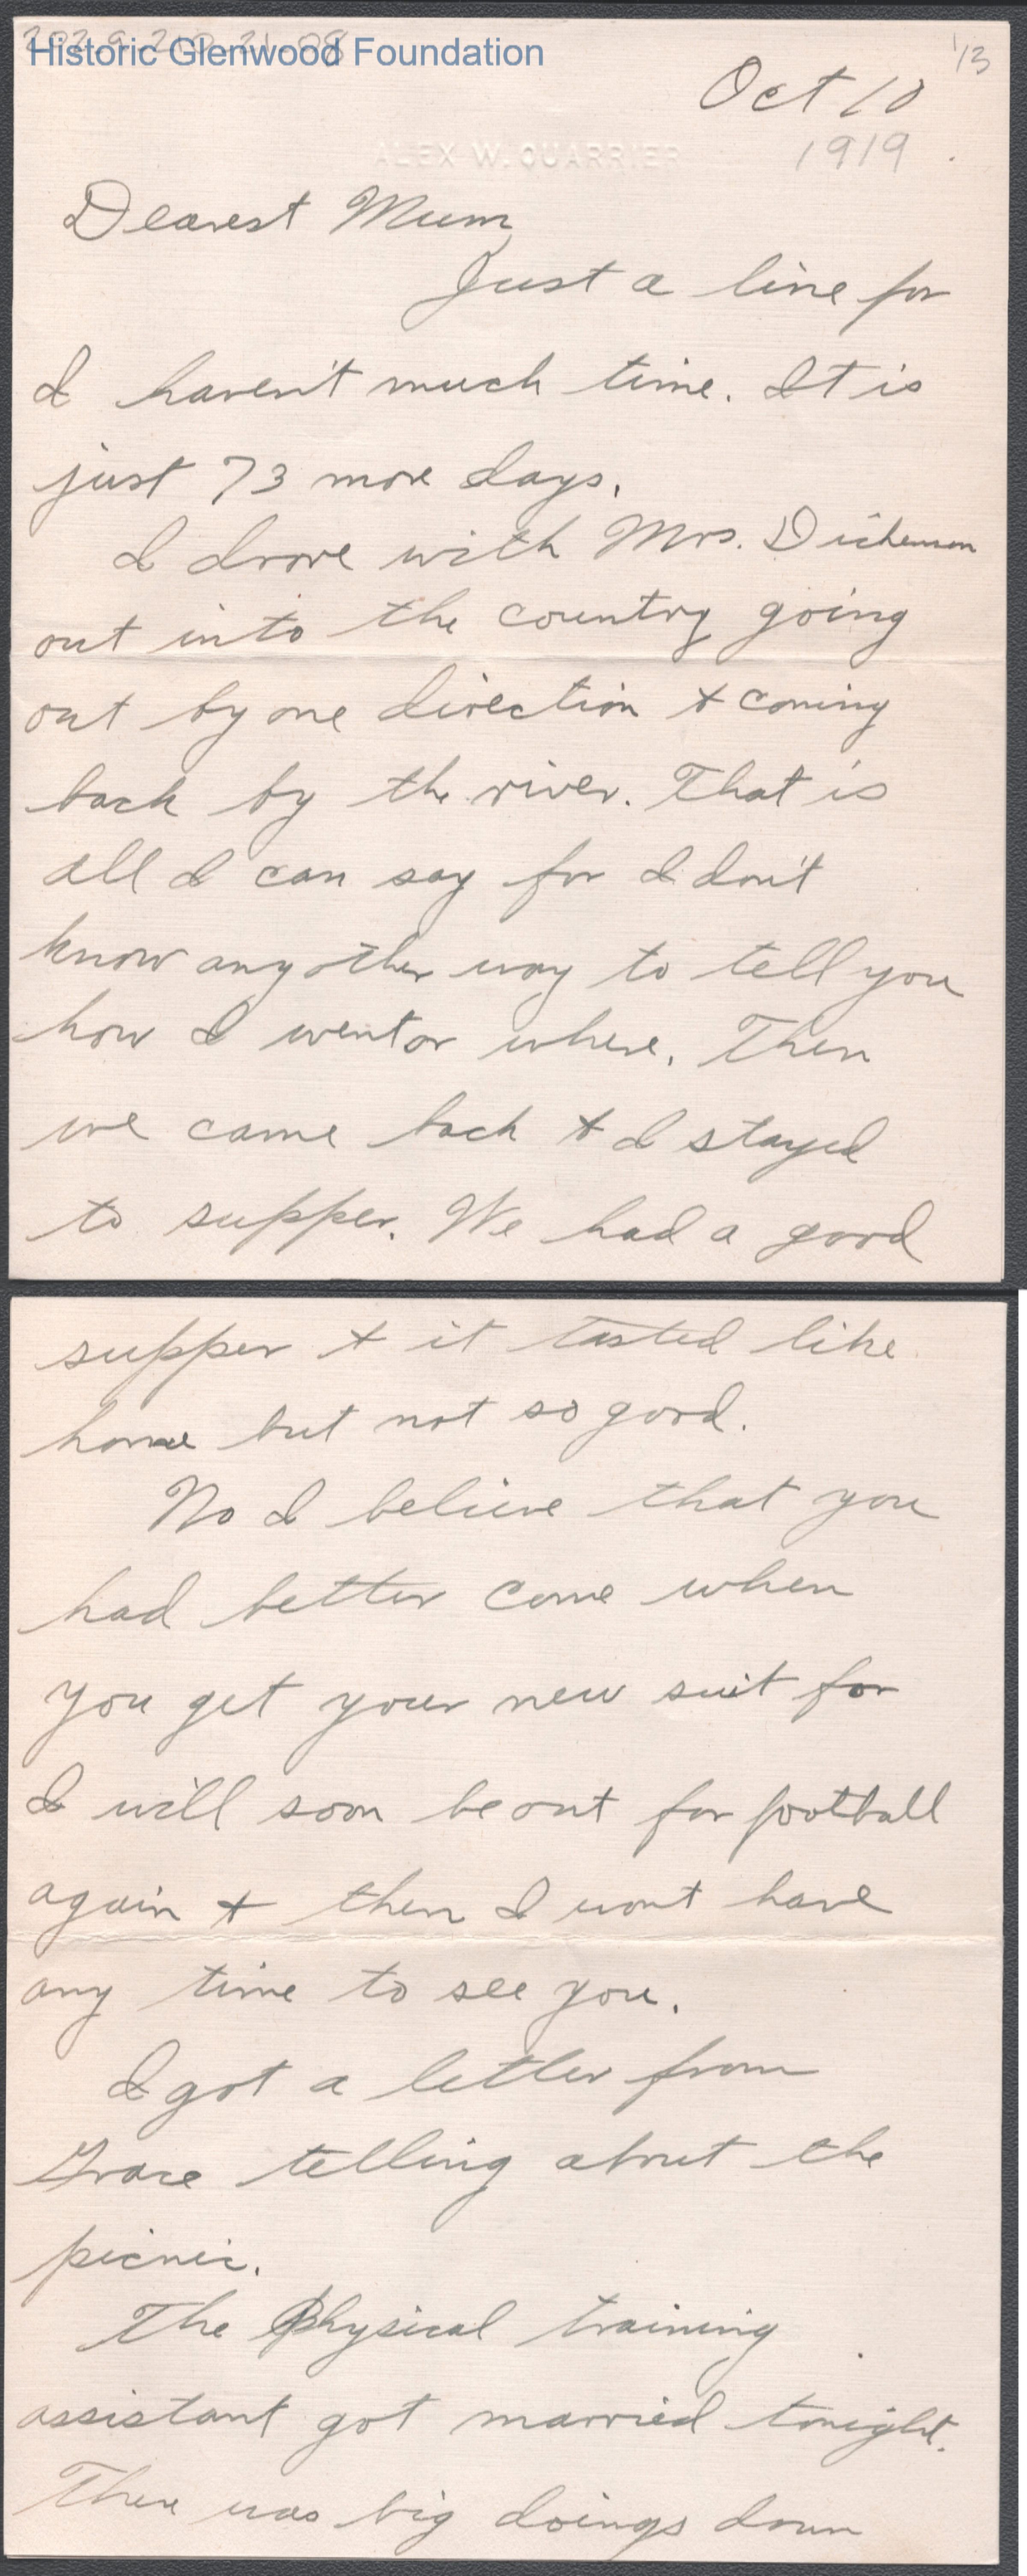 Historic Glenwood Foundation
1/3
Oct 10
1919
ALEX W. QUARRIER
Dearest Mum
Just a line for
I haven't much time. It is
just 73 more days.
I drove with Mrs.
out into the country going
out by one direction & coming
back by the river. That is
all I can say for I don't
know any other way to tell you
how I went or where. Then
we came back & I stayed
to supper. We had a good
supper & it tasted like
home but not so good.
No I believe that you
had better come when
you get your new suit for
I will soon be out for football
again & then I wont have
any time to see you.
I got a letter from
Grace telling about the
picnic.
The Physical training
assistant got married tonight.
There was big doings down